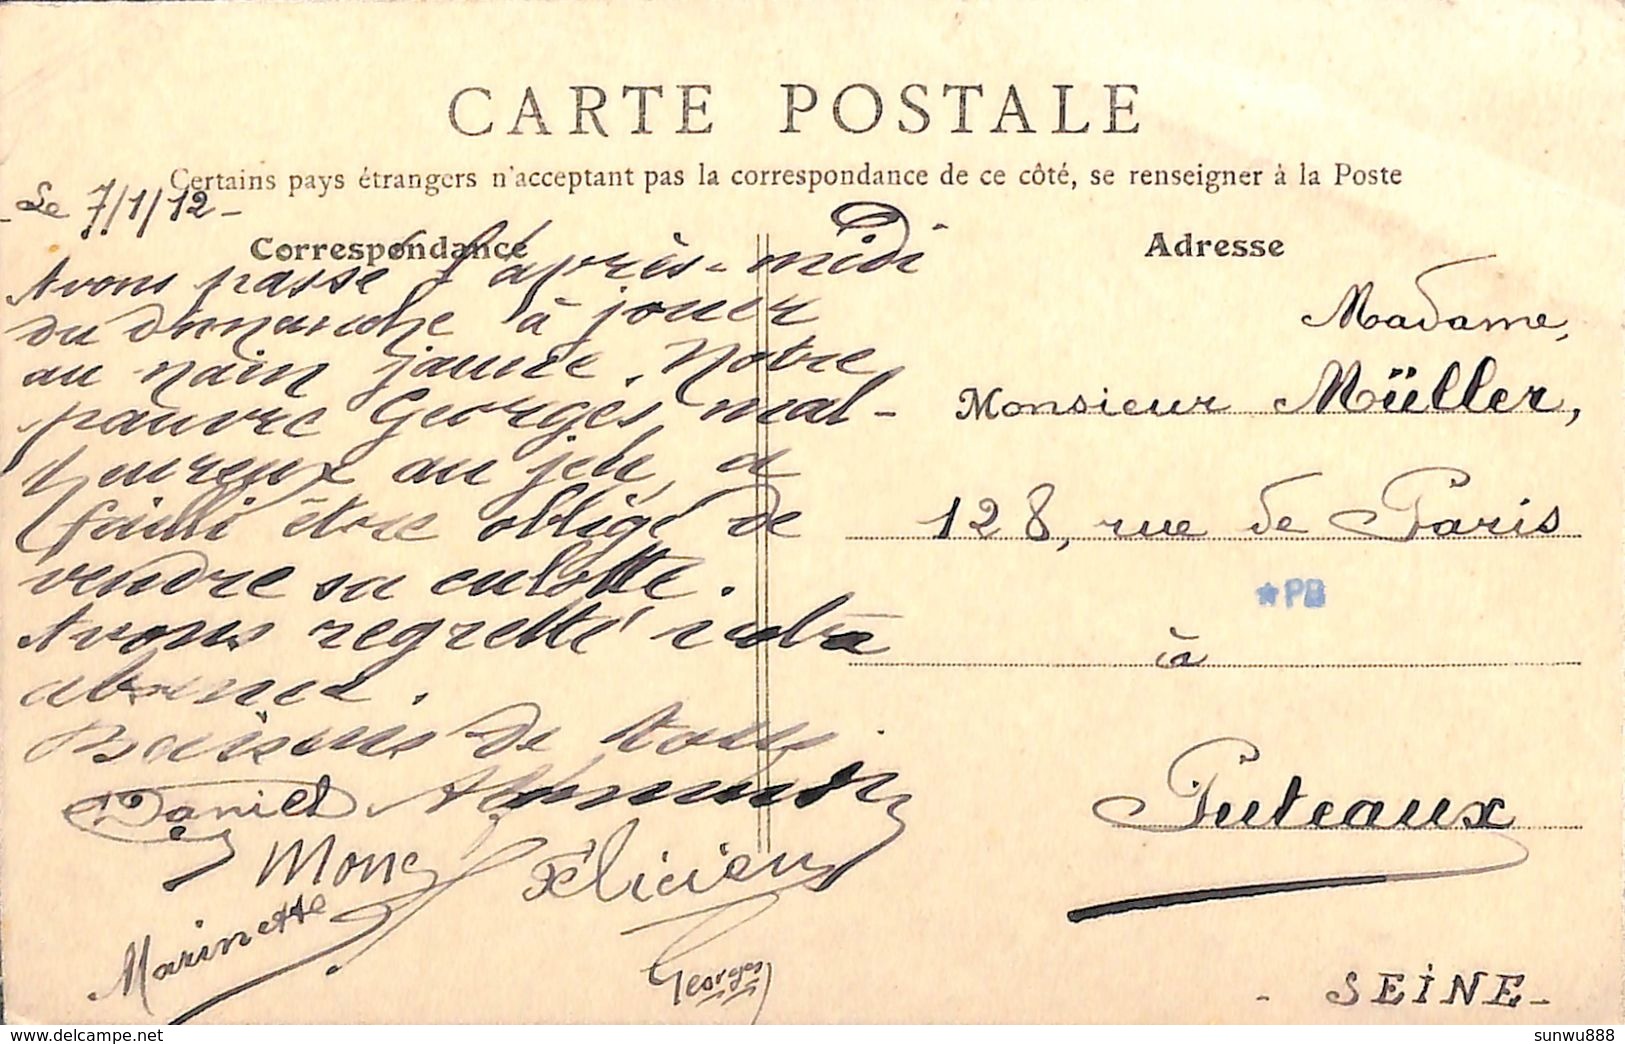 CARTE POSTALE
Certains pays étrangers n'acceptant pas la correspondance de ce côté, se renseigner à la Poste
Le 7/1/12
Correspondance
Avons passé l'après-midi
du dimanche à jouer
au nain jaune. Notre
pauvre Georges mal-
heureux au jeu, a
failli être obligé de
vendre sa culotte.
Avons regretté votre
absence.
Baisers de tous
Daniel
Félicien
Marinette
Georges
Adresse
Madame,
Monsieur Müller,
128, rue de Paris
★PB
à
Puteaux
- SEINE -
delcampe.net
sunwu888